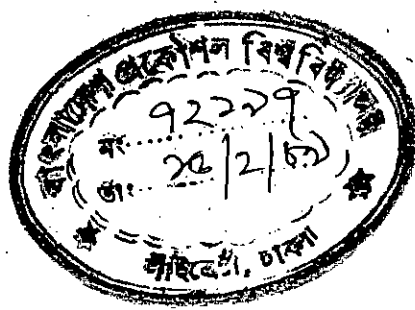 বাংলাদেশ প্রকৌশল বিশ্ববিদ্যালয়
নং ৭২২৯৭
তাং
লাইব্রেরী, ঢাকা